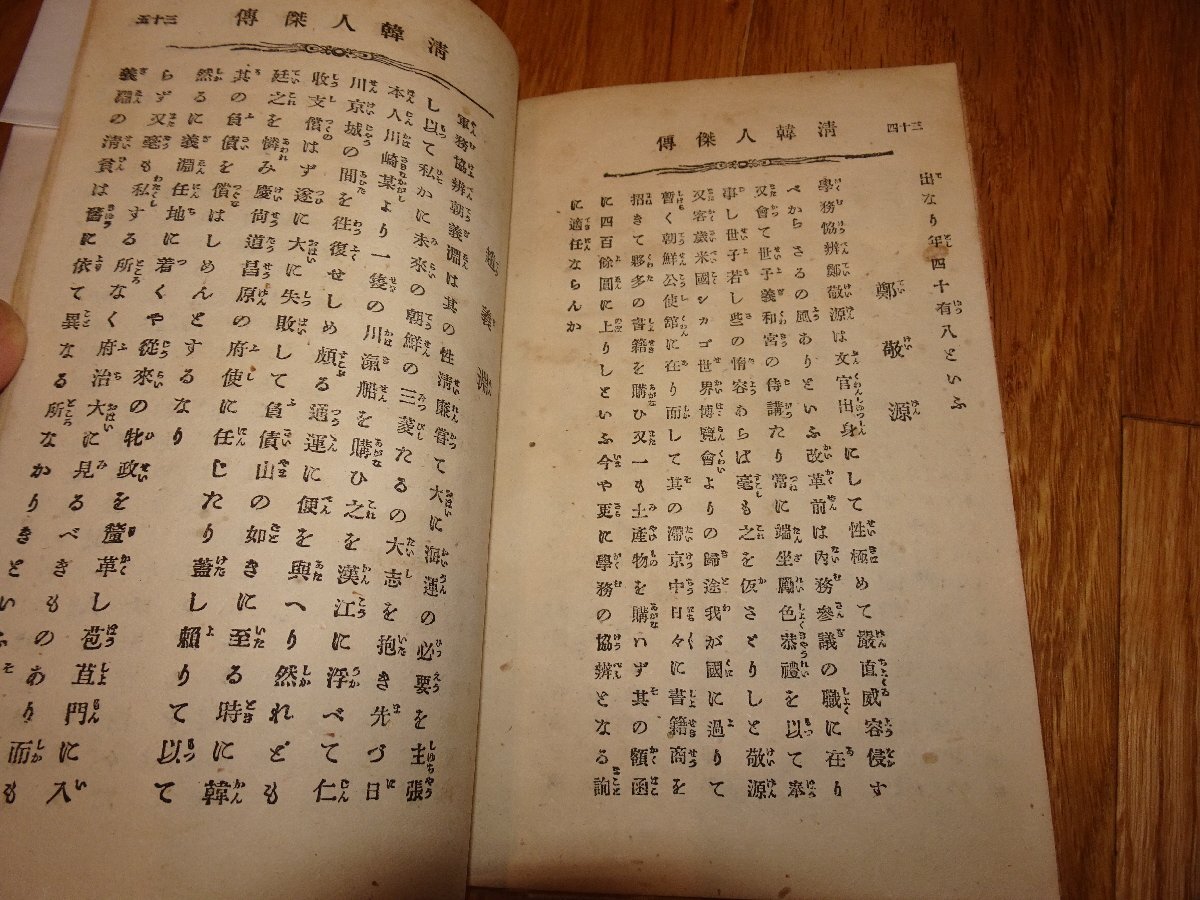 三十四
清韓人傑傳
出なり年四十有八といふ
鄭敬源
學務協辨鄭敬源は文官出身にして性極めて嚴直威容侵す
べからさるの風ありといふ改革前は內務參議の職に在り
又會て世子義和宮の侍講たり常に端坐勵色恭禮を以て奉
事し世子若し些の惰容あらば毫も之を仮さとりしと敬源
又客歲米國シカゴ世界博覽會よりの歸途我が國に過りて
暫く朝鮮公使館に在り而して其の滯京中日々に書籍商を
招きて夥多の書籍を購ひ又一も土產物を購ハず其の額函
に四百餘圓に上りしといふ今や更に學務の協辨となる洵
に適任ならんか
三十五
清韓人傑傳
趙義淵
軍務協辨朝義淵は其の性清廉嘗て大に海運の必要を主張
し以て私かに未來の朝鮮の三菱たるの大志を抱き先づ日
本人川崎某より一隻の川滊船を購ひ之を漢江に浮べて仁
川京城の間を徃復せしめ頗る通運に便を與へり然れども
收支償はず遂に大に失敗して負債山の如きに至る時に韓
廷之を憐み慶尙道昌原の府使に任じたり蓋し賴りて以て
其の負債を償はしめんとするなり
然るに義淵任地に着くや從來の牝政を釐革し苞苴門に入
らず又毫も私する所なく府治大に見るべきものあり而も
義淵の清貧は舊に依て異なる所なかりきといふそ